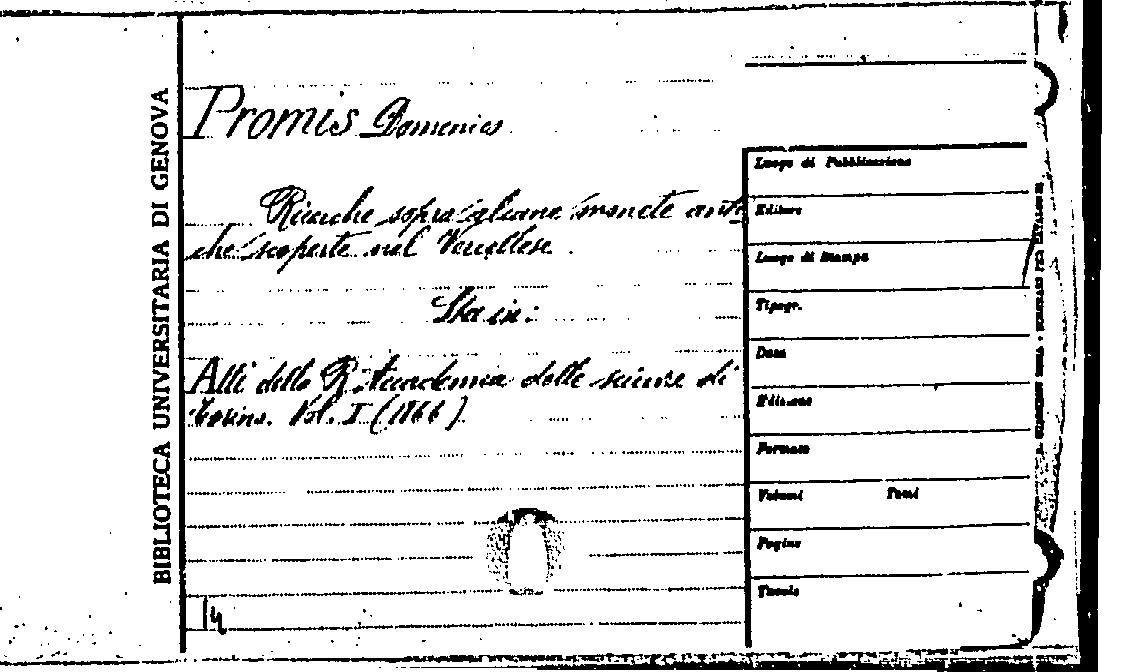 BIBLIOTECA UNIVERSITARIA DI GENOVA
Promis Domenico
Ricerche sopra alcune monete anti
che scoperte nel Vercellese.
Sta in:
Atti della R. Accademia delle scienze di
Torino. Vol. I (1866)
14
Luogo di Pubblicazione
Editore
Luogo di Stampa
Tipogr.
Data
Edizione
Formato
Volumi Tomi
Pagine